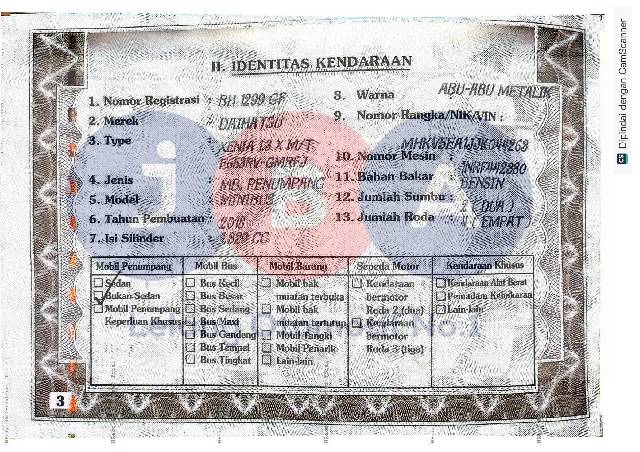 II. IDENTITAS KENDARAAN
1. Nomor Registrasi : BH 1299 GF
2. Merek : DAIHATSU
3. Type : XENIA 1.3 X M/T
4. Jenis : MB. PENUMPANG
5. Model : MINIBUS
6. Tahun Pembuatan : 2018
7. Isi Silinder : CC
8. Warna ABU-ABU METALIK
9. Nomor Rangka/NIK/VIN :
10. Nomor Mesin :
11. Bahan Bakar : BENSIN
12. Jumlah Sumbu : 2 ( DUA )
13. Jumlah Roda : 4 ( EMPAT )
Mobil Penumpang
Sedan
Bukan Sedan
Mobil Penumpang
Keperluan Khusus
Mobil Bus
Bus Kecil
Bus Besar
Bus Sedang
Bus Maxi
Bus Gandeng
Bus Tempel
Bus Tingkat
Mobil Barang
Mobil bak
muatan terbuka
Mobil bak
muatan tertutup
Mobil Tangki
Mobil Penarik
Lain-lain
Sepeda Motor
Kendaraan
bermotor
Roda 2 (dua)
Kendaraan
bermotor
Roda 3 (tiga)
Kendaraan Khusus
Kendaraan Alat Berat
Pemadam Kebakaran
Lain-lain
JBA
No.1
3
CS Dipindai dengan CamScanner